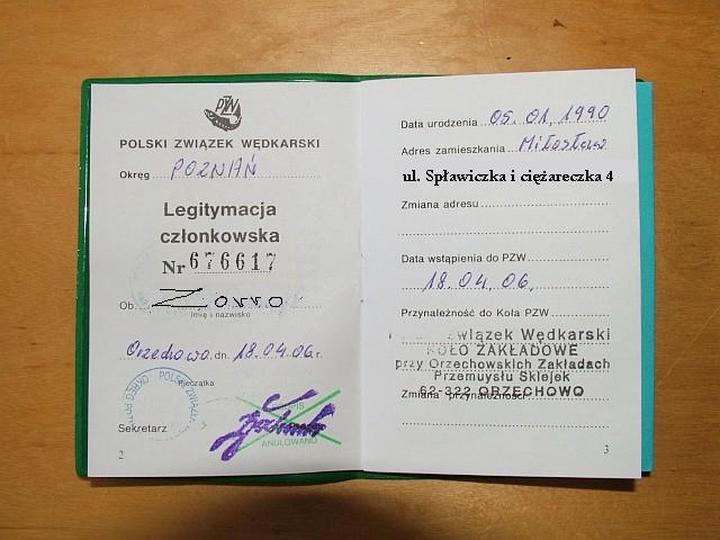 PZW
POLSKI ZWIĄZEK WĘDKARSKI
Okręg POZNAŃ
Legitymacja
członkowska
Nr 676617
Ob. Zorro
imię i nazwisko
Orzechowo dn. 18.04.06 r.
pieczątka
Sekretarz
ANULOWANO
2
Data urodzenia 05.01.1990
Adres zamieszkania Miłosław
ul. Spławiczka i ciężareczka 4
Zmiana adresu
Data wstąpienia do PZW
18.04.06.
Przynależność do Koła PZW
Związek Wędkarski
KOŁO ZAKŁADOWE
przy Orzechowskich Zakładach
Przemysłu Sklejek
Zmiana przynależności
62-322 ORZECHOWO
3